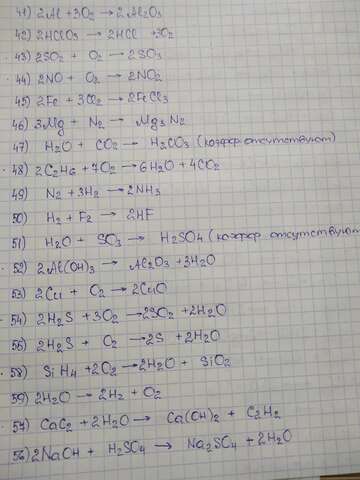 41) 2Al + 3O₂ → 2Al₂O₃
42) 2HClO₃ → 2HCl + 3O₂
43) 2SO₂ + O₂ → 2SO₃
44) 2NO + O₂ → 2NO₂
45) 2Fe + 3Cl₂ → 2FeCl₃
46) 3Mg + N₂ → Mg₃N₂
47) H₂O + CO₂ → H₂CO₃ (коэфф отсутствуют)
48) 2C₂H₆ + 7O₂ → 6H₂O + 4CO₂
49) N₂ + 3H₂ → 2NH₃
50) H₂ + F₂ → 2HF
51) H₂O + SO₃ → H₂SO₄ (коэфф отсутствуют
52) 2Al(OH)₃ → Al₂O₃ + 3H₂O
53) 2Cu + O₂ → 2CuO
54) 2H₂S + 3O₂ → 2SO₂ + 2H₂O
55) 2H₂S + O₂ → 2S + 2H₂O
58) SiH₄ + 2O₂ → 2H₂O + SiO₂
59) 2H₂O → 2H₂ + O₂
57) CaC₂ + 2H₂O → Ca(OH)₂ + C₂H₂
56) 2NaOH + H₂SO₄ → Na₂SO₄ + 2H₂O